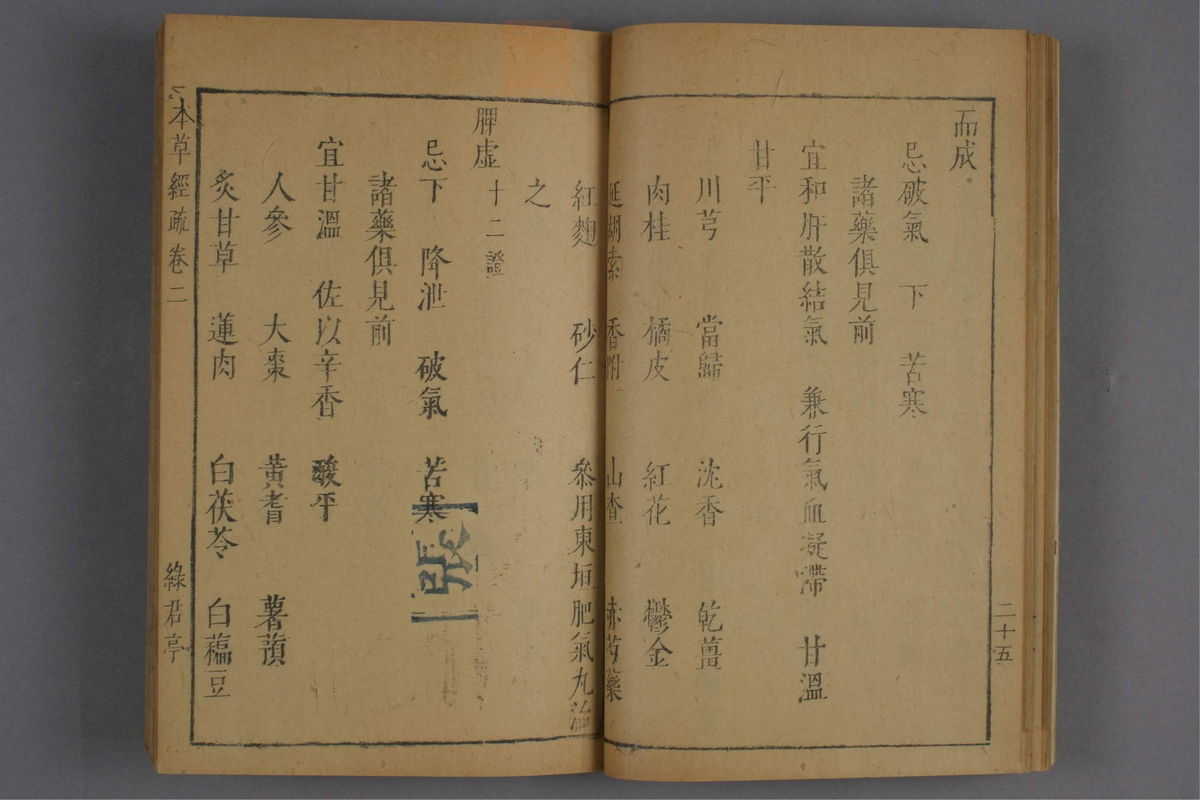 而成
忌破氣　下　苦寒
諸藥俱見前
宜和肝散結氣　兼行氣血凝滯　甘溫
甘平
川芎　當歸　沈香　乾薑
肉桂　橘皮　紅花　鬱金
延胡索　香附　山楂　赤芍藥
紅麴　砂仁　叅用東垣肥氣丸治
之
脾虛十二證
忌下　降泄　破氣　苦寒
諸藥俱見前
宜甘溫　佐以辛香　酸平
人參　大棗　黃耆　薯蕷
炙甘草　蓮肉　白茯苓　白藊豆
本草經疏卷二　綠君亭
二十五
張